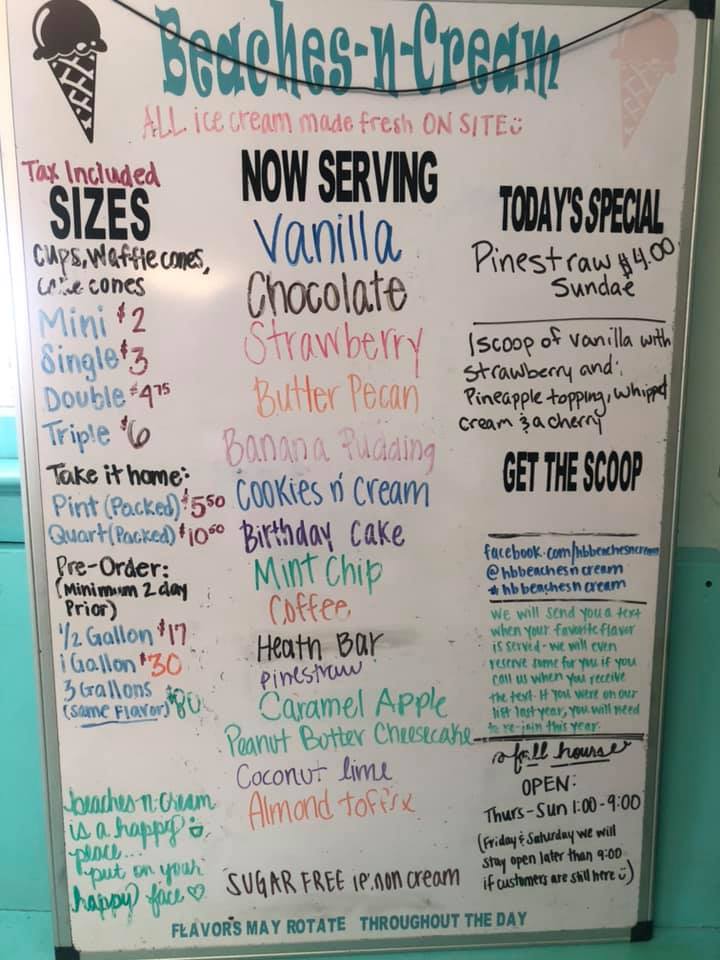 Beaches-n-Cream
ALL ice cream made fresh ON SITE
Tax Included
SIZES
Cups, Waffle cones,
cake cones
Mini $2
Single $3
Double $4.75
Triple $6
Take it home:
Pint (Packed) $5.50
Quart (Packed) $10.00
Pre-Order:
(Minimum 2 day
Prior)
1/2 Gallon $17
1 Gallon $30
3 Gallons $80
(same Flavor)
beaches-n-cream
is a happy
place...
put on your
happy face ♡
NOW SERVING
Vanilla
Chocolate
Strawberry
Butter Pecan
Banana Pudding
Cookies n' Cream
Birthday Cake
Mint Chip
Coffee
Heath Bar
pinestraw
Caramel Apple
Peanut Butter Cheesecake
Coconut lime
Almond
SUGAR FREE
TODAY'S SPECIAL
Pinestraw $4.00
Sundae
1 scoop of vanilla with
strawberry and
Pineapple topping, whipped
cream & a cherry
GET THE SCOOP
facebook.com/hbbeachesncream
@hbbeachesncream
#hbbeachesncream
We will send you a text
when your favorite flavor
is served - we will even
reserve some for you if you
call us when you receive
the text. If you were on our
list last year, you will need
to re-join this year.
fall hours
OPEN:
Thurs-Sun 1:00-9:00
(Friday & Saturday we will
stay open later than 9:00
if customers are still here :))
FLAVORS MAY ROTATE THROUGHOUT THE DAY